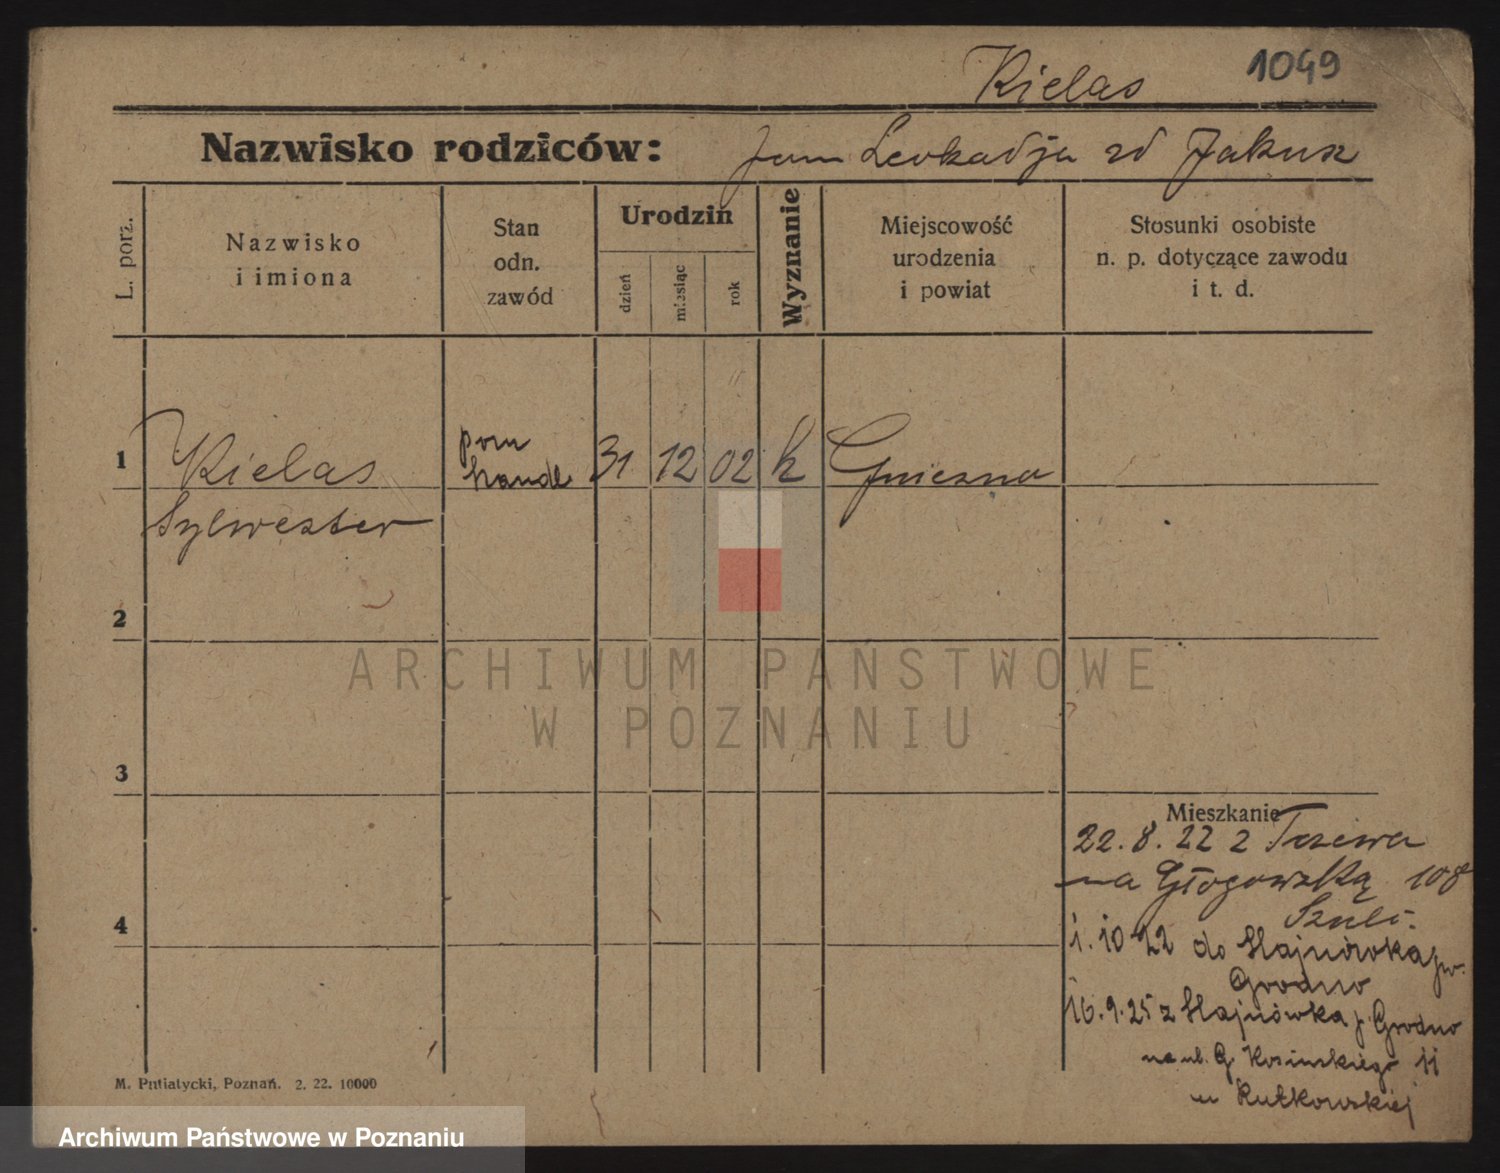 Kielas 1049
Nazwisko rodziców: Jan Leokadja zd Jakusz
L. porz.
Nazwisko
i imiona
Stan
odn.
zawód
Urodzin
dzień
miesiąc
rok
Wyznanie
Miejscowość
urodzenia
i powiat
Stosunki osobiste
n. p. dotyczące zawodu
i t. d.
1 Kielas pom handl 31 12 02 k Gniezno
Sylwester
2
ARCHIWUM PAŃSTWOWE
W POZNANIU
3
Mieszkanie
22. 8. 22 z Tczewa
na Głogowską 108
4
1. 10 22 do Hajnówka pw.
Grodno
16. 9. 25 z Hajnówka p. Grodno
na ul. G. Kosinskiego 11
u Rutkowskiej
M. Putiatycki, Poznań. 2. 22. 10000
Archiwum Państwowe w Poznaniu